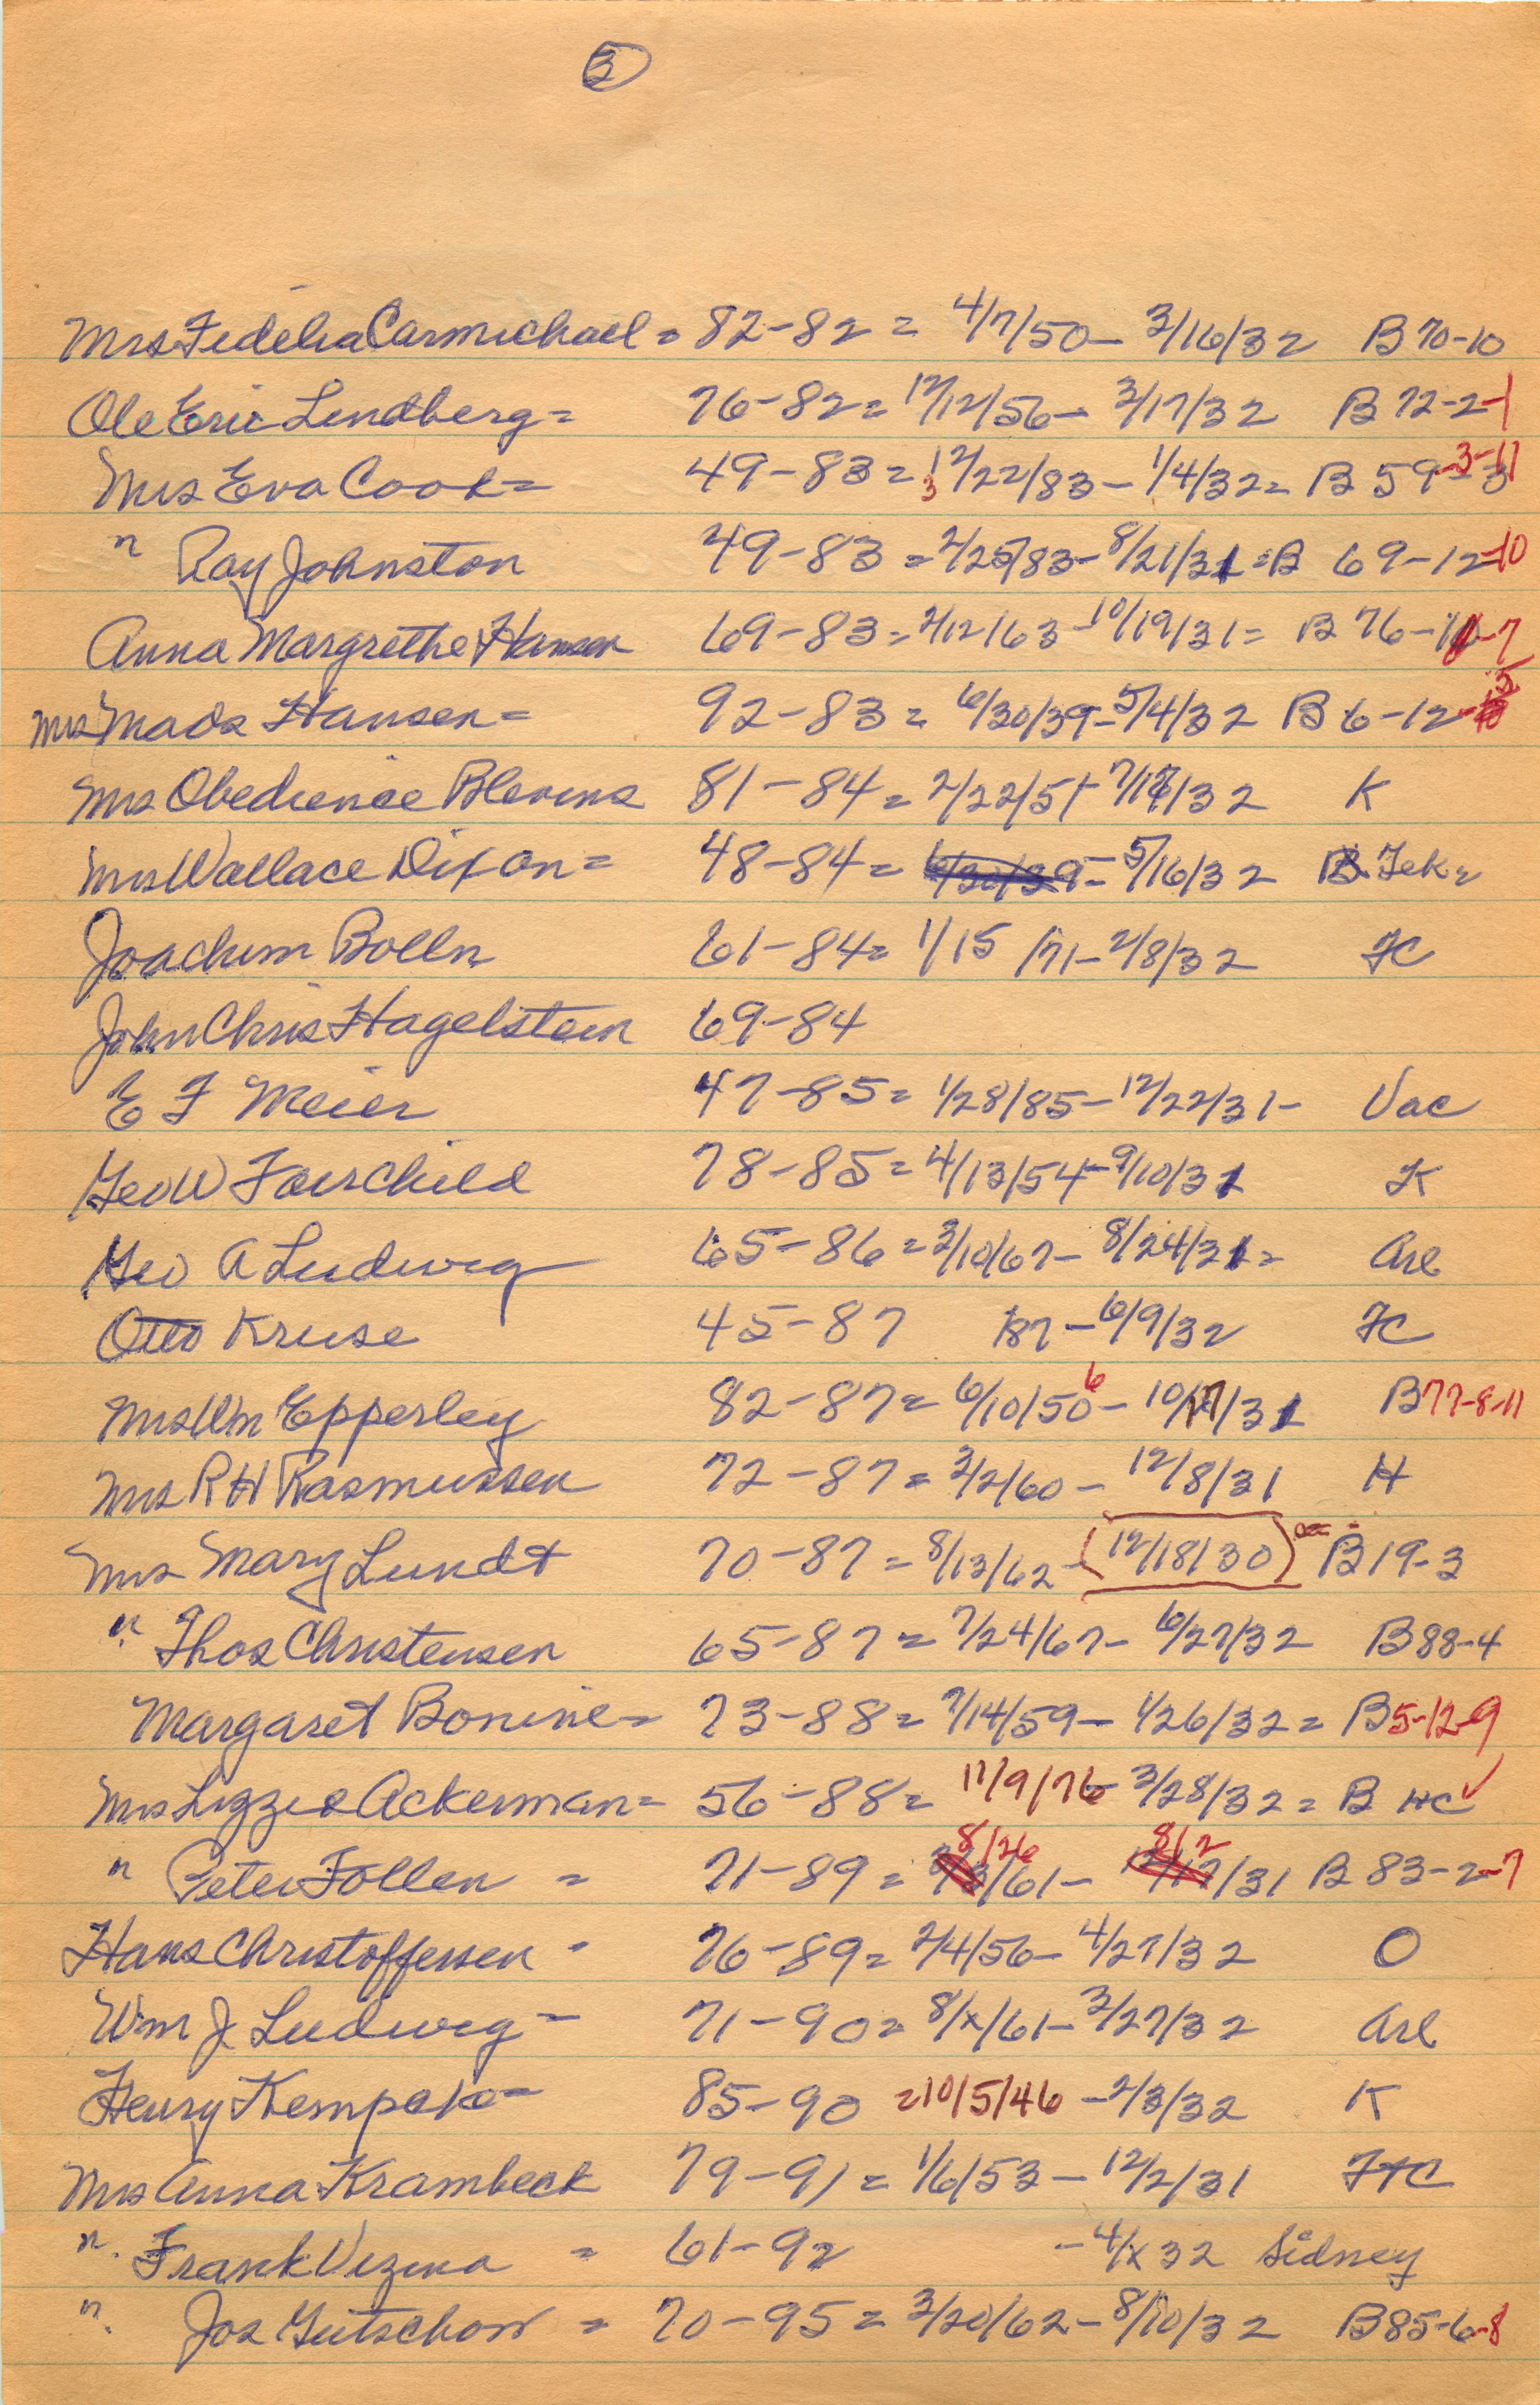 3
Mrs Fedelia Carmichael = 82-82 = 4/7/50 - 3/16/32 B 70-10
Ole Eric Lindberg = 76-82 = 12/12/56 - 3/17/32 B 72-2-1
Mrs Eva Cook = 49-83 = 12/22/83 - 1/4/32 = B 59-3-11
" Ray Johnston 49-83 = 2/25/83 - 8/21/31 = B 69-12-10
Anna Margrethe Hansen 69-83 = 2/12/63 - 10/19/31 = B 76- -7
Mrs Mads Hansen = 92-83 = 6/30/39 - 5/4/32 B 6-12-5
Mrs Obedience Blevins 81-84 = 2/22/51 - 7/17/32 K
Mrs Wallace Dixon = 48-84 = 6/30/39 - 5/16/32 B Tek =
Joachim Bolln 61-84 = 1/15/71 - 2/8/32 FC
John Chris Hagelstein 69-84
E F Meier 47-85 = 1/28/85 - 12/22/31 - Vac
Geo W Fairchild 78-85 = 4/13/54 - 9/10/31 K
Geo A Ludwig 65-86 = 3/10/67 - 8/24/31 = Arl
Otto Kruse 45-87 /87 - 6/9/32 FC
Mrs Wm Epperley 82-87 = 6/10/50 6 - 10/17/31 B 77-8-11
Mrs R H Rasmussen 72-87 = 3/2/60 - 12/8/31 H
Mrs Mary Lundt 70-87 = 8/13/62 - (12/18/30) B 19-3
" Thos Christensen 65-87 = 7/24/67 - 6/27/32 B 88-4
Margaret Bonine = 73-88 = 7/14/59 - 1/26/32 = B 5-12-9
Mrs Lizzie Ackerman = 56-88 = 11/9/76 - 3/28/32 = B HC ✓
" Peter Follen = 71-89 = 8/26/61 - 8/2/31 B 83-2-7
Hans Christoffersen - 76-89 = 2/4/56 - 4/27/32 O
Wm J Ludwig = 71-90 = 8/x/61 - 3/27/32 Arl
Henry Kempcke = 85-90 = 10/5/46 - 2/3/32 K
Mrs Anna Krambeck 79-91 = 1/6/53 - 12/2/31 FtC
" Frank Vezina = 61-92 - 4/x 32 Sidney
" Jos Gutschow = 70-95 = 3/20/62 - 8/10/32 B 85-6-8